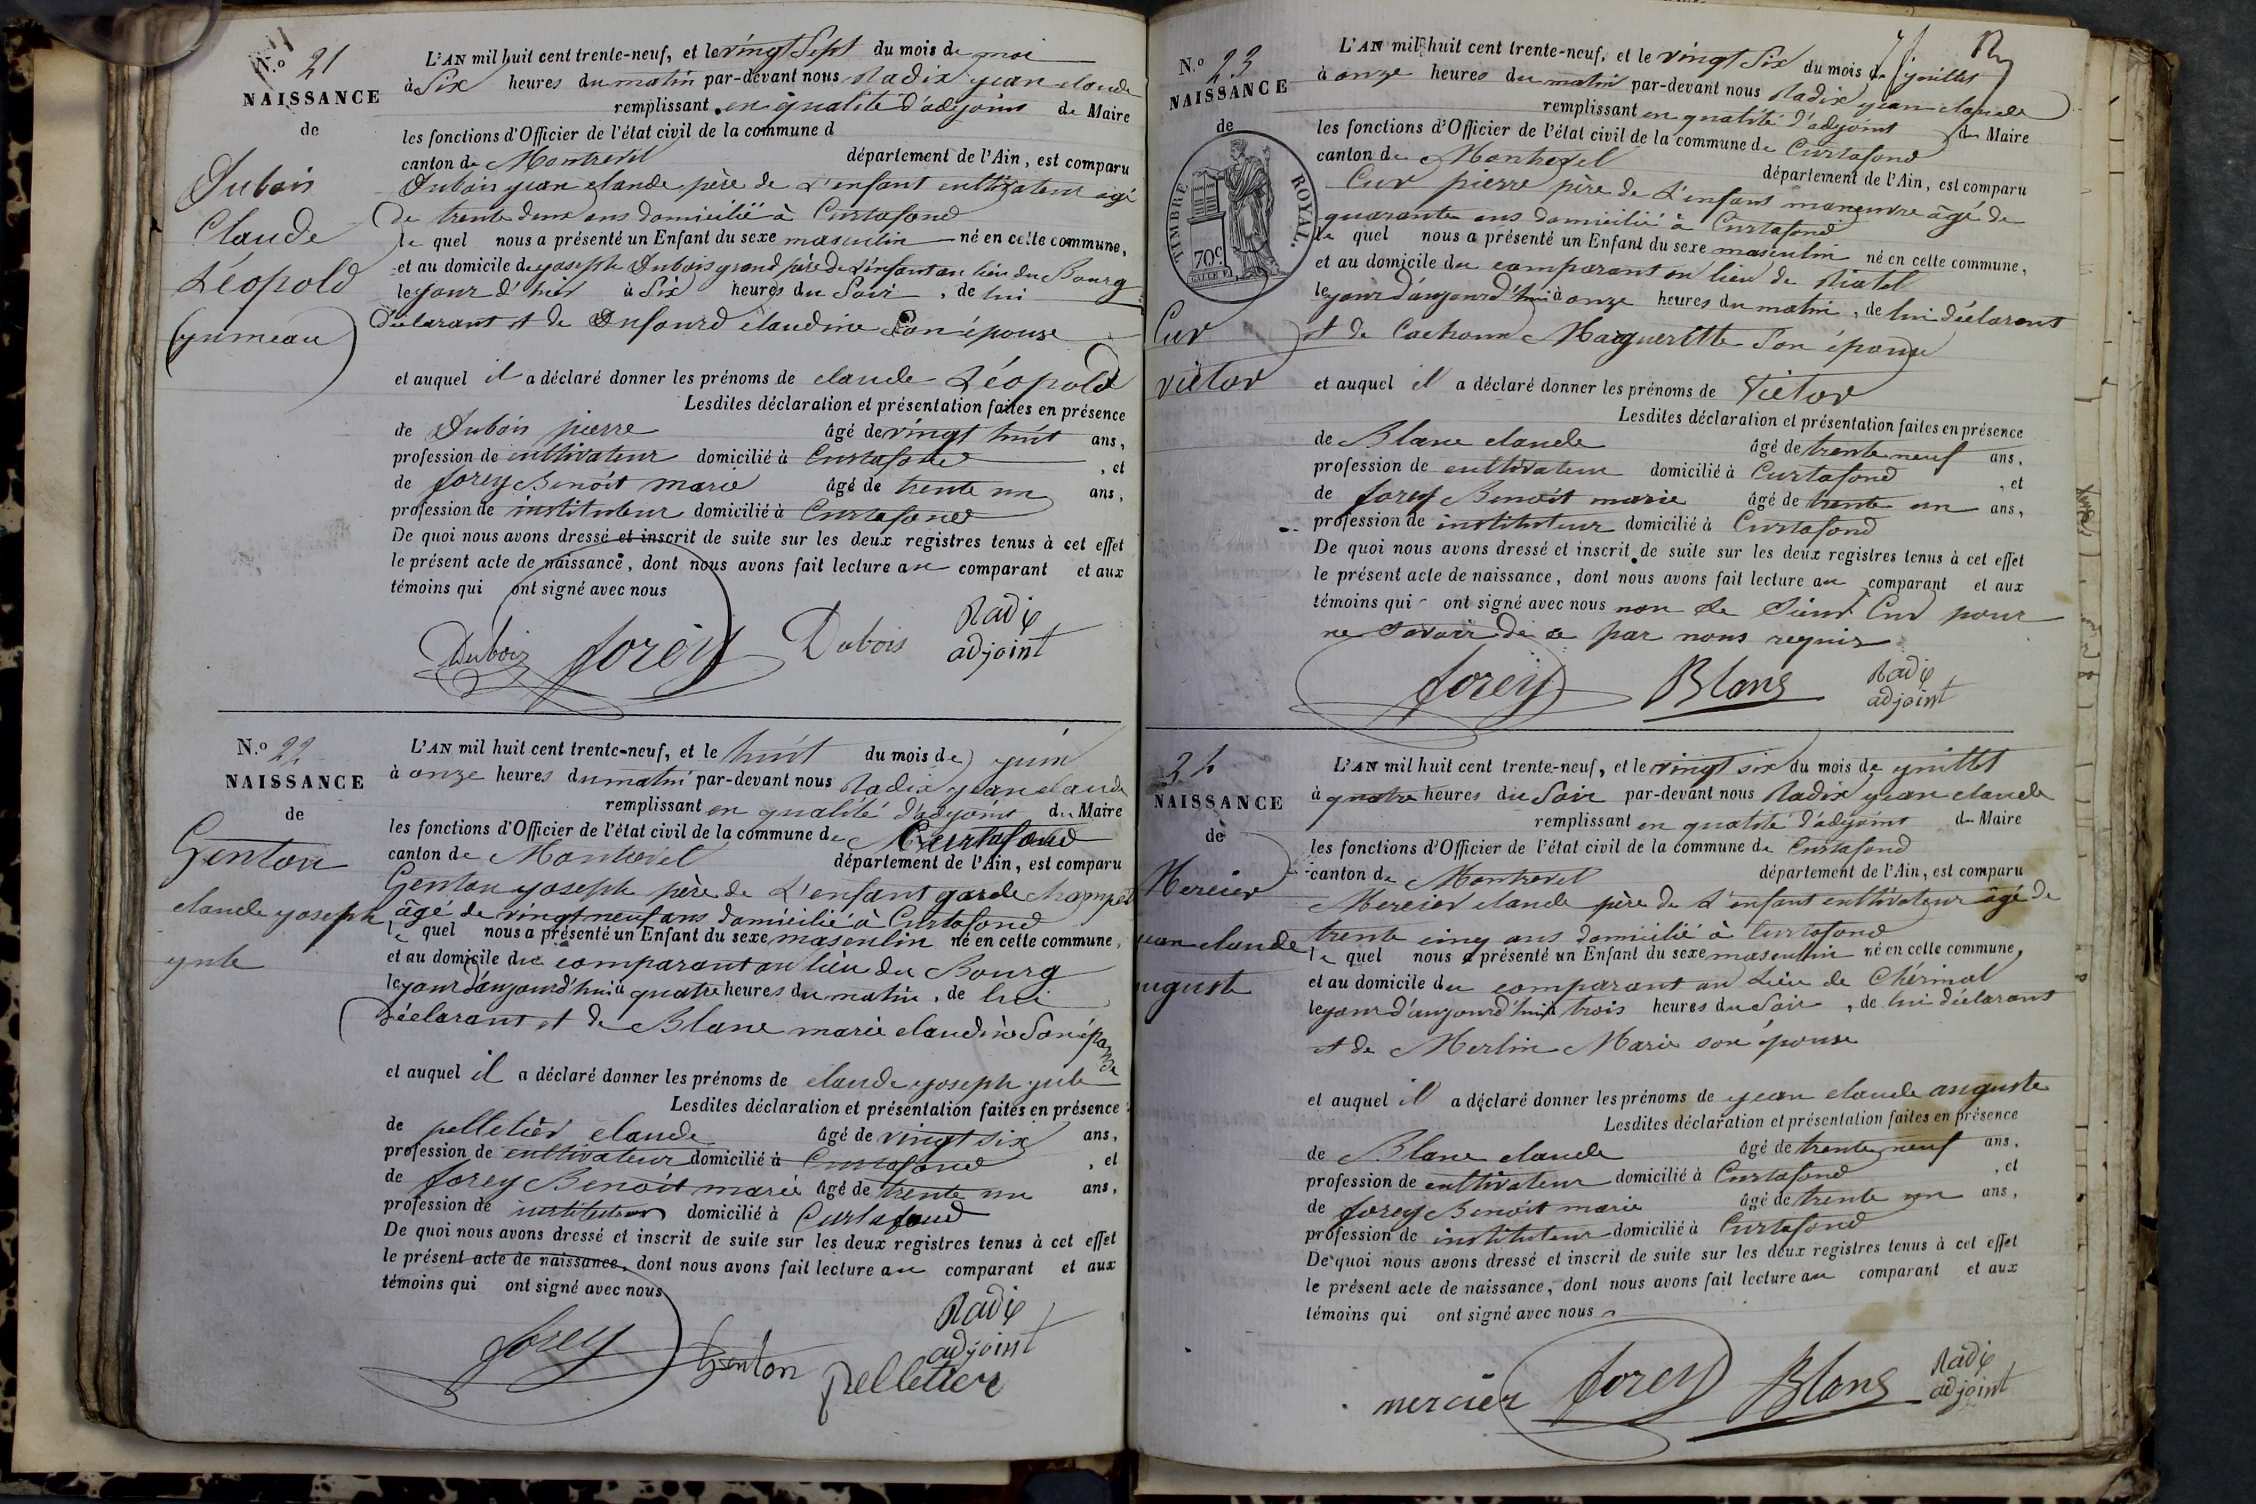 N.o 21
NAISSANCE
de
Dubois
Claude
Léopold
(jumeau)
L'AN mil huit cent trente-neuf, et le vingt Sept du mois de mai
à Six heures du matin par-devant nous Radix jean claude
remplissant en qualité d'adjoint de Maire
les fonctions d'Officier de l'état civil de la commune d
canton de Montrevel département de l'Ain, est comparu
Dubois jean claude père de L'enfant cultivateur agé
de trente deux ans domicilié à Curtafond
le quel nous a présenté un Enfant du sexe masculin né en cette commune,
et au domicile de joseph Dubois grand père de L'enfant au lieu du Bourg
le jour d'hier à Six heures du Soir, de lui
déclarant et de Dufourd claudine Son épouse
et auquel il a déclaré donner les prénoms de claude Léopold
Lesdites déclaration et présentation faites en présence
de Dubois pierre âgé de vingt huit ans,
profession de cultivateur domicilié à Curtafond, et
de forey Benoit marie âgé de trente un ans,
profession de instituteur domicilié à Curtafond
De quoi nous avons dressé et inscrit de suite sur les deux registres tenus à cet effet
le présent acte de naissance, dont nous avons fait lecture au comparant et aux
témoins qui ont signé avec nous
Dubois forey Dubois Radix
adjoint
N.o 22
NAISSANCE
de
Genton
claude joseph
jule
L'AN mil huit cent trente-neuf, et le huit du mois de juin
à onze heures du matin par-devant nous Radix jean claude
remplissant en qualité d'adjoint du Maire
les fonctions d'Officier de l'état civil de la commune de Curtafond
canton de Montrevel département de l'Ain, est comparu
Genton joseph père de L'enfant garde champet
âgé de vingt neuf ans domicilié à Curtafond
le quel nous a présenté un Enfant du sexe masculin né en cette commune,
et au domicile du comparant au lieu du Bourg
le jour d'aujourd'hui à quatre heures du matin, de lui
déclarant et de Blanc marie claudine Son épouse
et auquel il a déclaré donner les prénoms de claude joseph jule
Lesdites déclaration et présentation faites en présence
de pelletier claude âgé de vingt six ans,
profession de cultivateur domicilié à Curtafond, et
de forey Benoit marie âgé de trente un ans,
profession de instituteur domicilié à Curtafond
De quoi nous avons dressé et inscrit de suite sur les deux registres tenus à cet effet
le présent acte de naissance, dont nous avons fait lecture au comparant et aux
témoins qui ont signé avec nous
forey Genton Radix
adjoint
pelletier
N.o 23
NAISSANCE
de
TIMBRE ROYAL.
70c
Cur
victor
L'AN mil huit cent trente-neuf, et le vingt Six du mois de juillet
à onze heures du matin par-devant nous Radix jean claude
remplissant en qualité d'adjoint du Maire
les fonctions d'Officier de l'état civil de la commune de Curtafond
canton de Montrevel département de l'Ain, est comparu
Cur pierre père de L'enfant maneuvre âgé de
quarante ans domicilié à Curtafond
le quel nous a présenté un Enfant du sexe masculin né en cette commune,
et au domicile du comparant au lieu de
le jour d'aujourd'hui à onze heures du matin, de lui déclarant
et de Margueritte Son épouse
et auquel il a déclaré donner les prénoms de Victor
Lesdites déclaration et présentation faites en présence
de Blanc claude âgé de trente neuf ans,
profession de cultivateur domicilié à Curtafond, et
de forey Benoit marie âgé de trente un ans,
profession de instituteur domicilié à Curtafond
De quoi nous avons dressé et inscrit de suite sur les deux registres tenus à cet effet
le présent acte de naissance, dont nous avons fait lecture au comparant et aux
témoins qui ont signé avec nous non Le Sieur Cur pour
ne Savoir de ce par nous requis
forey Blanc Radix
adjoint
24
NAISSANCE
de
Mercier
jean claude
auguste
L'AN mil huit cent trente-neuf, et le vingt six du mois de juillet
à quatre heures du Soir par-devant nous Radix jean claude
remplissant en qualité d'adjoint de Maire
les fonctions d'Officier de l'état civil de la commune de Curtafond
canton de Montrevel département de l'Ain, est comparu
Mercier claude père de L'enfant cultivateur âgé de
trente cinq ans domicilié à Curtafond
le quel nous a présenté un Enfant du sexe masculin né en cette commune,
et au domicile du comparant au Lieu de Chérinal
le jour d'aujourd'hui à trois heures du Soir, de lui déclarant
et de Merlin Marie son épouse
et auquel il a déclaré donner les prénoms de jean claude auguste
Lesdites déclaration et présentation faites en présence
de Blanc claude âgé de trente neuf ans,
profession de cultivateur domicilié à Curtafond, et
de forey Benoit marie âgé de trente un ans,
profession de instituteur domicilié à Curtafond
De quoi nous avons dressé et inscrit de suite sur les deux registres tenus à cet effet
le présent acte de naissance, dont nous avons fait lecture au comparant et aux
témoins qui ont signé avec nous
mercier forey Blanc Radix
adjoint